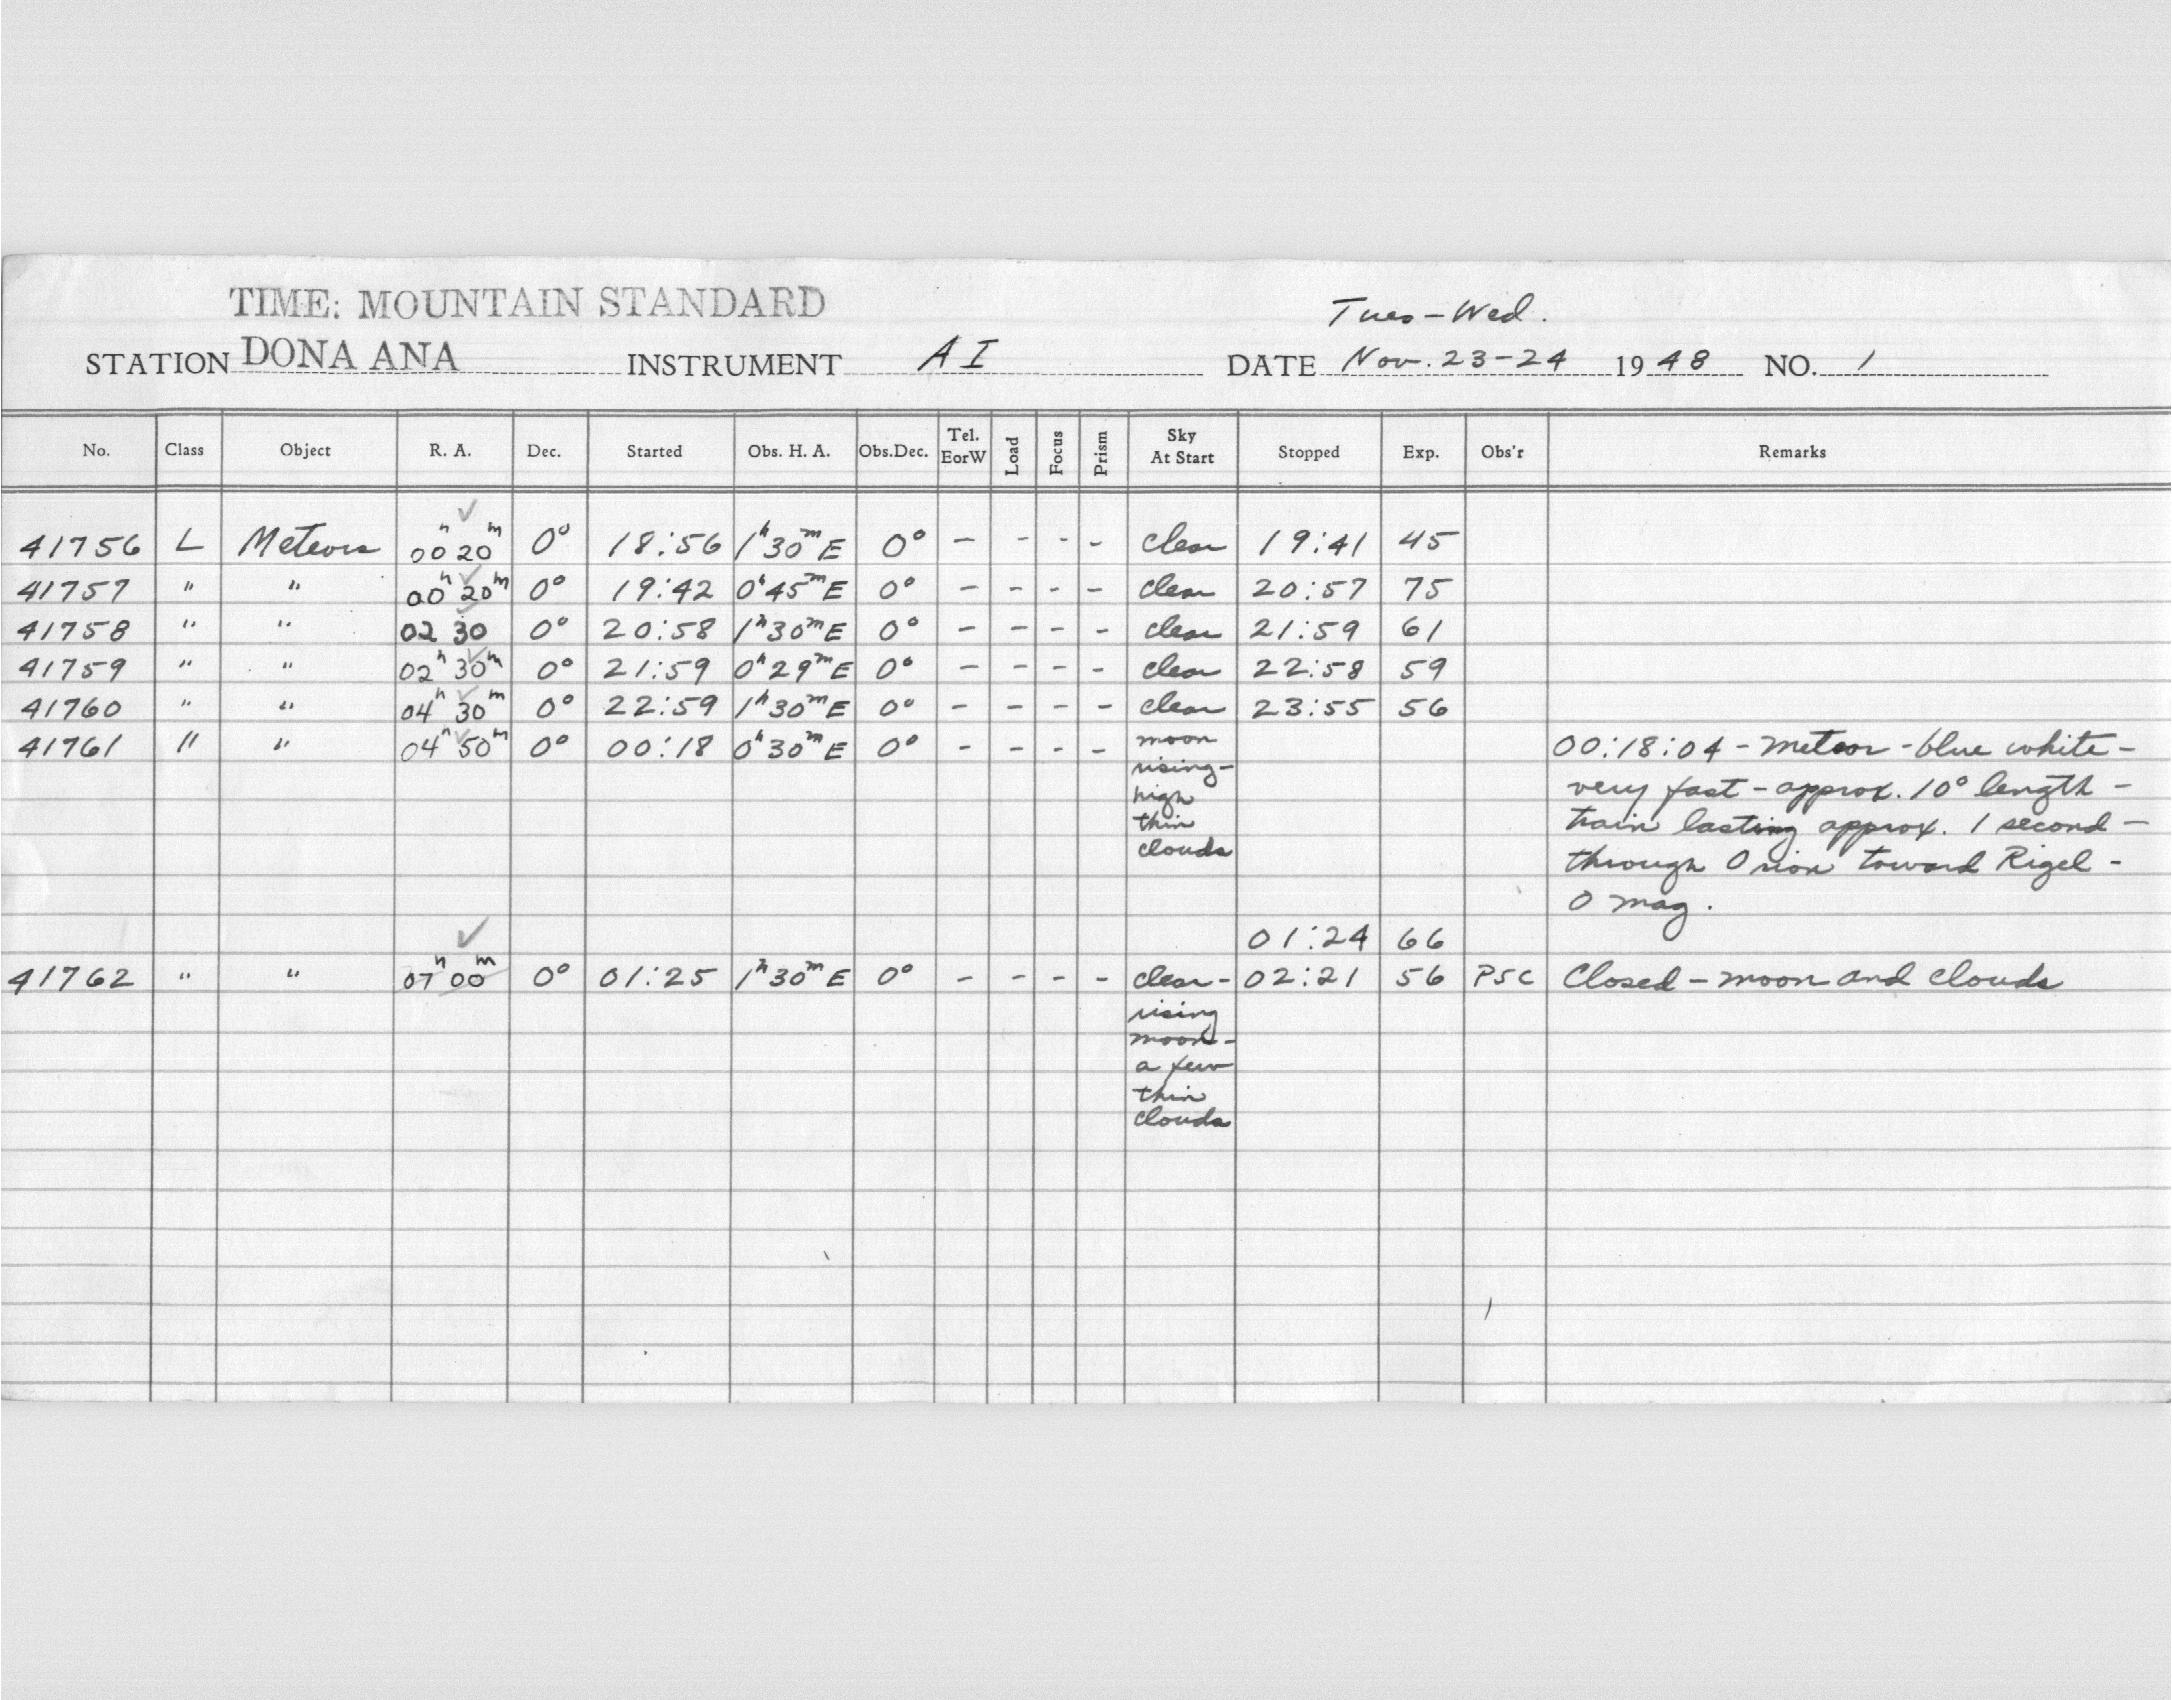 TIME: MOUNTAIN STANDARD
Tues-Wed.
STATION DONA ANA INSTRUMENT AI DATE Nov. 23-24 1948 NO. 1
No. Class Object R. A. Dec. Started Obs. H. A. Obs.Dec. Tel. EorW Load Focus Prism Sky At Start Stopped Exp. Obs'r Remarks
41756 L Meteors 00h 20m 0° 18:56 1h30mE 0° - - - - clear 19:41 45
41757 " " 00h 20m 0° 19:42 0h45mE 0° - - - - clear 20:57 75
41758 " " 02 30 0° 20:58 1h30mE 0° - - - - clear 21:59 61
41759 " " 02h 30m 0° 21:59 0h29mE 0° - - - - clear 22:58 59
41760 " " 04h 30m 0° 22:59 1h30mE 0° - - - - clear 23:55 56
41761 " " 04h 50m 0° 00:18 0h30mE 0° - - - - moon 00:18:04 - meteor - blue white -
rising- very fast - approx. 10° length -
high
thin train lasting approx. 1 second -
clouds through Orion toward Rigel -
0 mag.
01:24 66
41762 " " 07h 00m 0° 01:25 1h30mE 0° - - - - clear- 02:21 56 PSC Closed - moon and clouds
rising
moon-
a few
thin
clouds